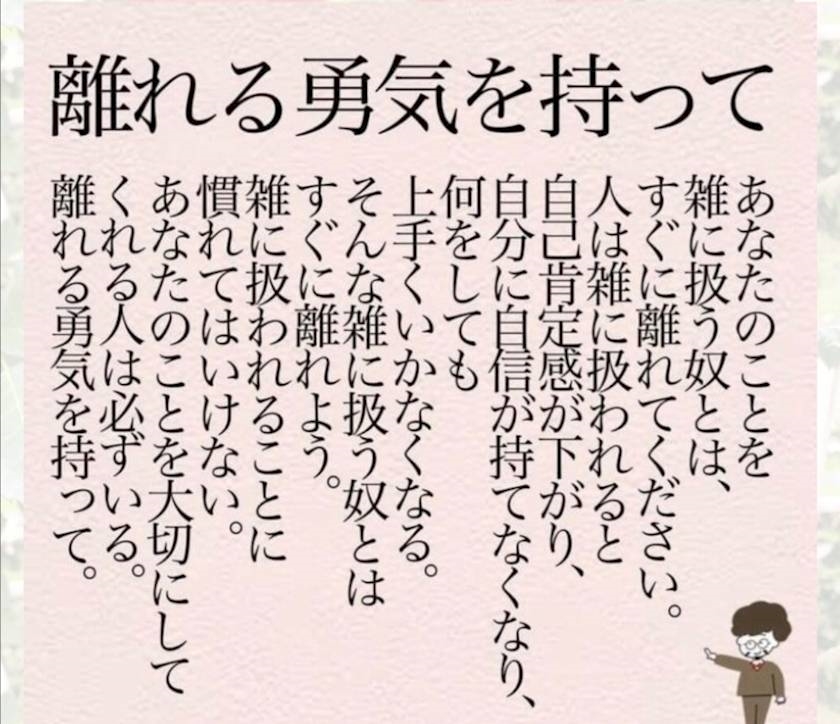 離れる勇気を持って
あなたのことを
雑に扱う奴とは、
すぐに離れてください。
人は雑に扱われると
自己肯定感が下がり、
自分に自信が持てなくなり、
何をしても
上手くいかなくなる。
そんな雑に扱う奴とは
すぐに離れよう。
雑に扱われることに
慣れてはいけない。
あなたのことを大切にして
くれる人は必ずいる。
離れる勇気を持って。